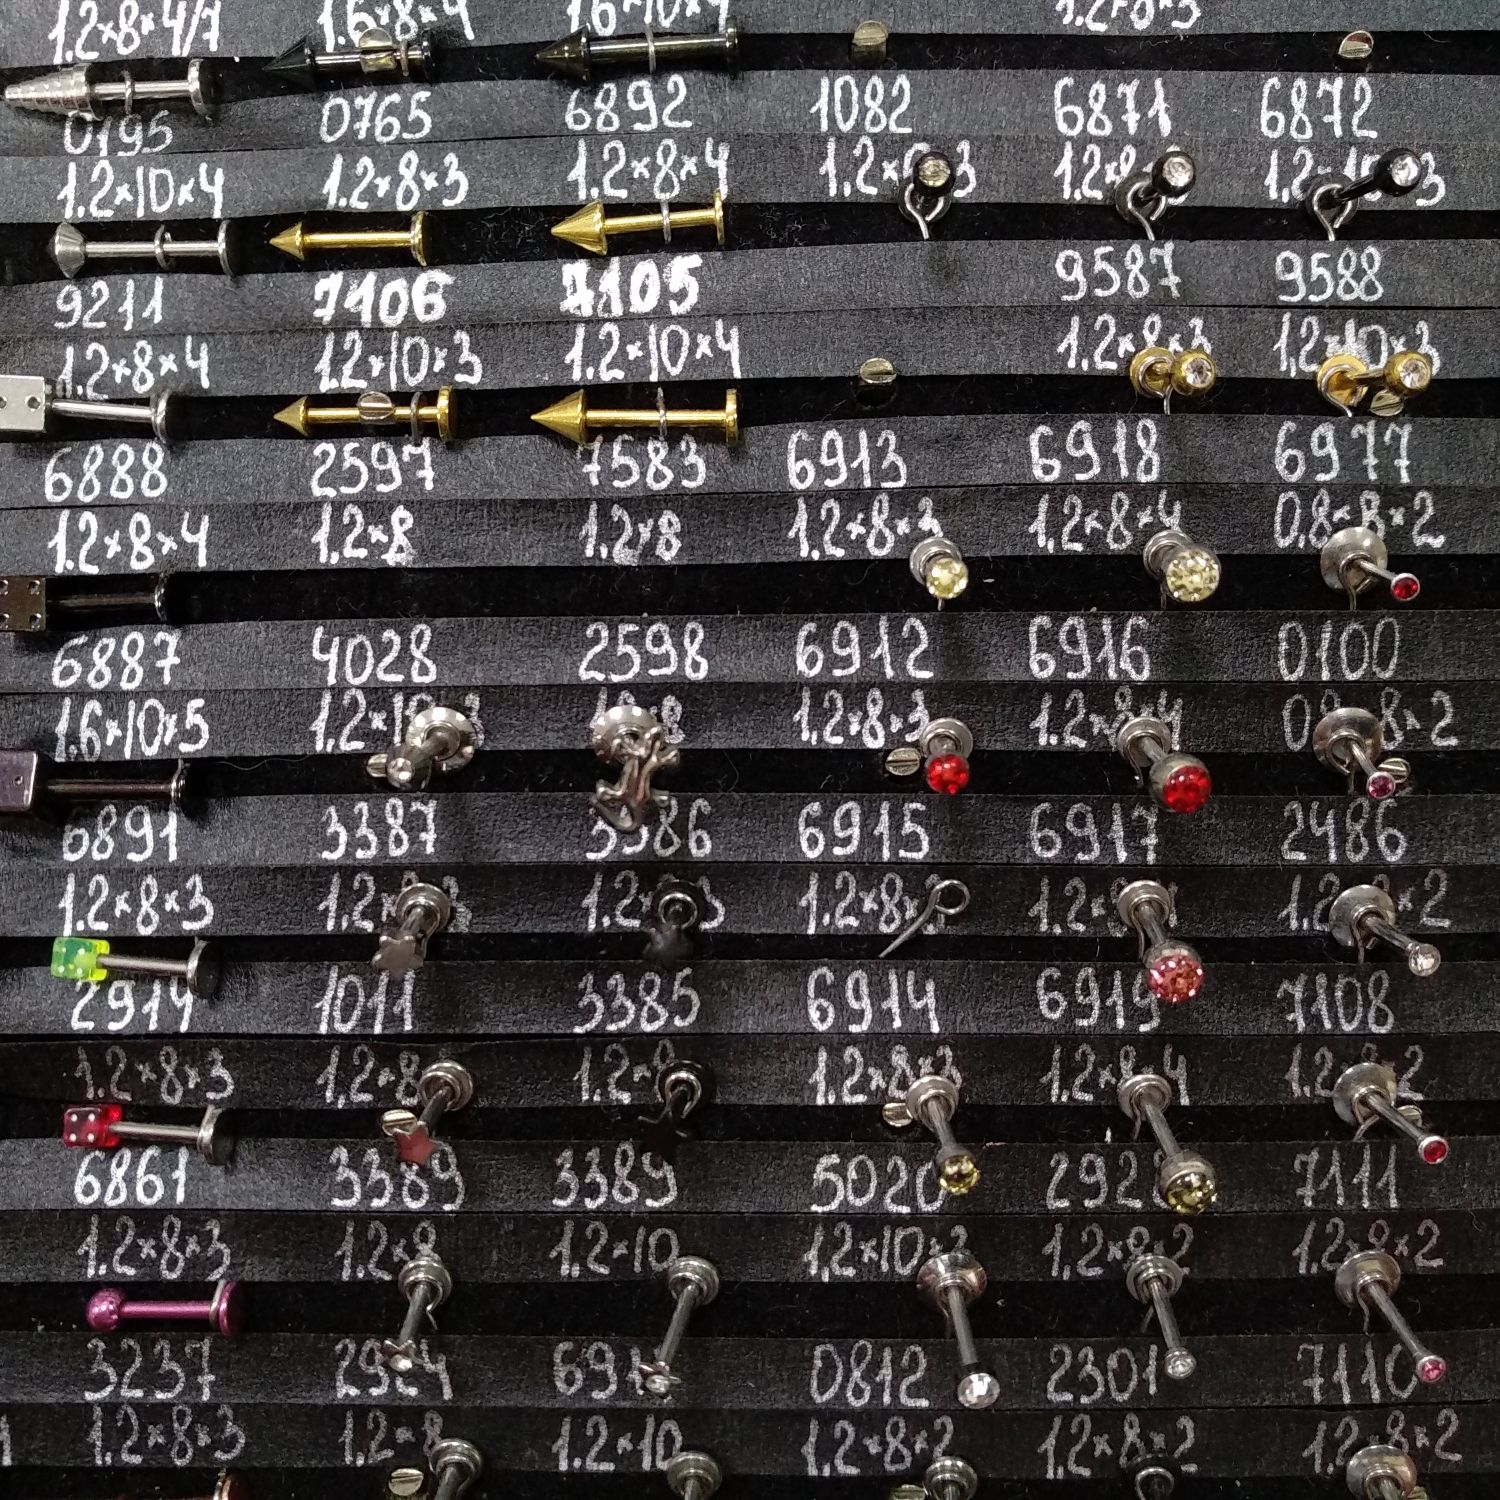 1.2×8×4/7 1.6×8×4 1.6×10×4 1.2×8×3
0195 0765 6892 1082 6871 6872
1.2×10×4 1.2×8×3 1.2×8×4 1.2×6×3 1.2×8 1.2×10×3
9211 7106 7105 9587 9588
1.2×8×4 12×10×3 1.2×10×4 1.2×8×3 1.2×10×3
6888 2597 7583 6913 6918 6977
1.2×8×4 1.2×8 1.2×8 1.2×8×3 1.2×8×4 0.8×8×2
6887 4028 2598 6912 6916 0100
1.6×10×5 1.2×8×3 1.2×8×4 8×2
6891 3387 3386 6915 6917 2486
1.2×8×3 1.2×8×
2914 1011 3385 6914 6919 7108
1.2×8×3 1.2×8 1.2×8 1.2×8×3 1.2×8×4
6861 3389 3389 5020 292 7111
1.2×8×3 1.2×8 1.2×10 1.2×10×3 1.2×8×2 1.2×8×2
3237 2924 691 0812 2301 7110
1.2×8×3 1.2×8 1.2×10 1.2×8×2 1.2×8×2 1.2×8×2